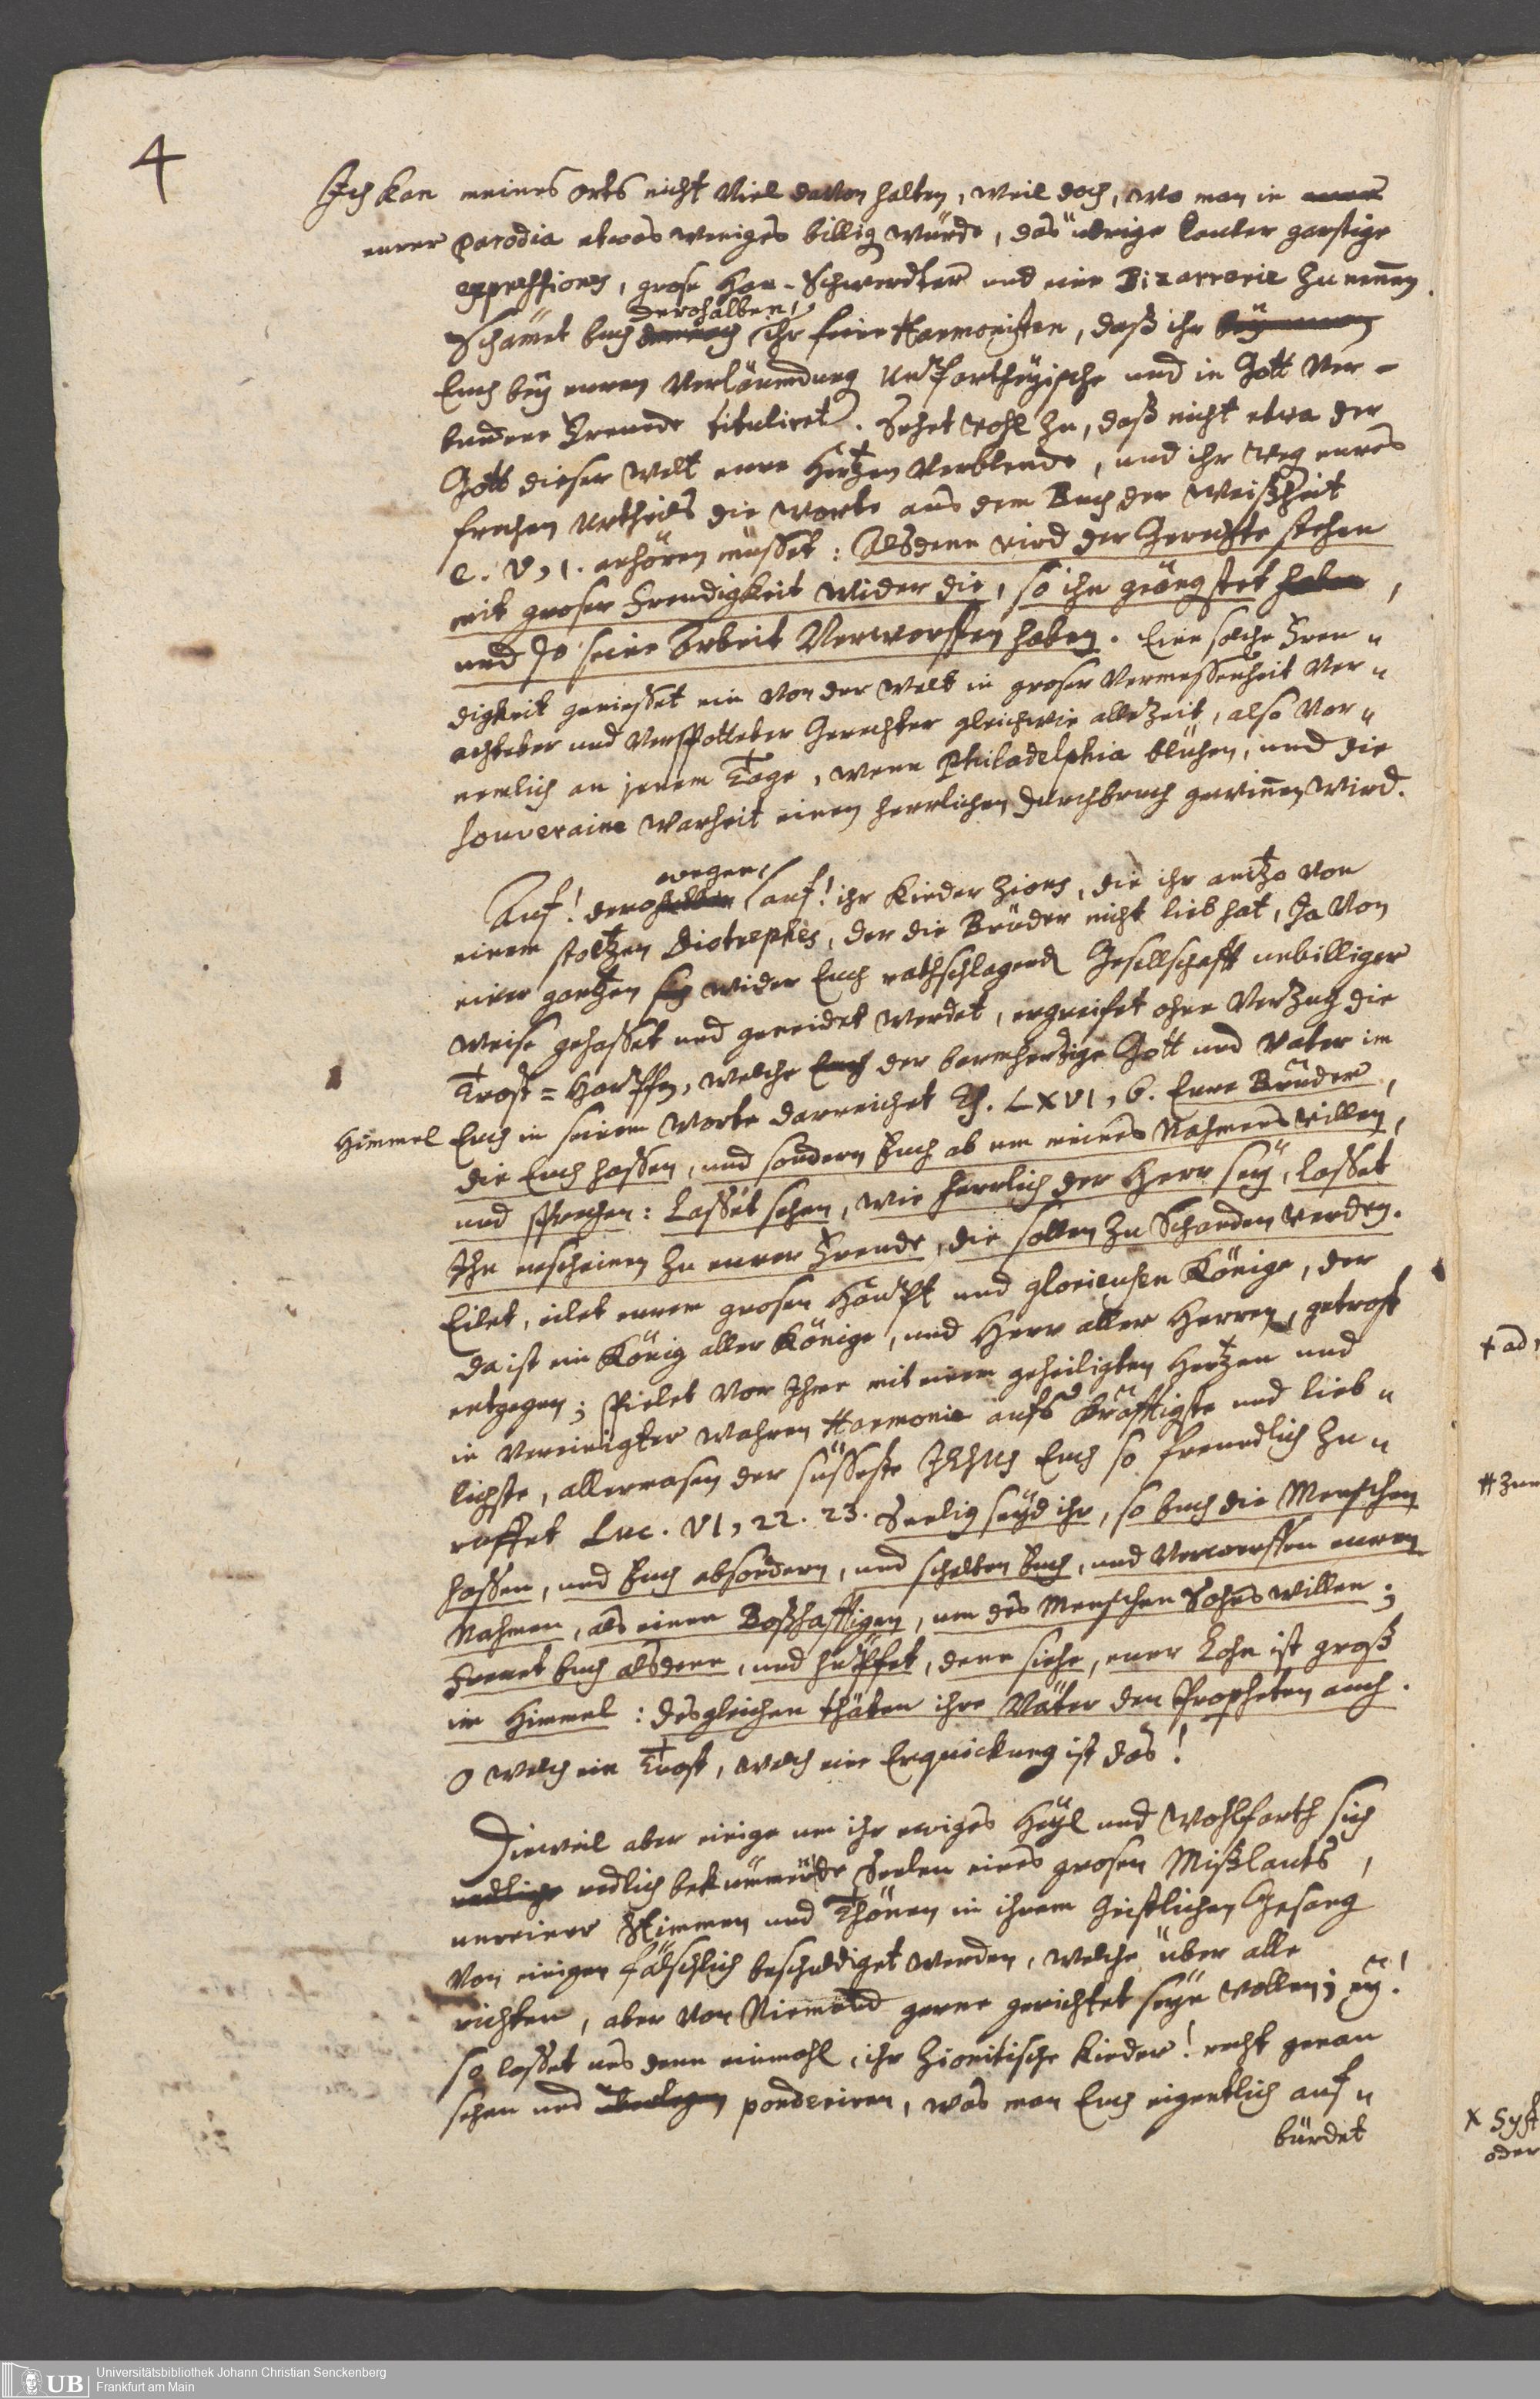 4
Ich kan meines orts nicht viel davon halten, weil doch, wo man in
eurer parodia etwas weniges billig würde, das übrige lauter garstige
expressiones, grose Hau-Schwerdter und eine Bizarrerie zu nennen.
derohalben,
Schämet Euch demnach ihr feine Harmonisten, daß ihr
Euch bey eurer Verläumdung Unpartheyische und in Gott ver-
bundene Freunde tituliret. Sehet wohl zu, daß nicht etwa der
Gott dieser Welt eure Hertzen verblende, und ihr weg. eures
frechen Urtheils die Worte aus dem Buch der Weißheit
c. V, 1. anhören müsset: Alsdenn wird der Gerechte stehen
mit groser Freudigkeit wider die, so ihn geängstet haben,
und so seine Arbeit verworffen haben. Eine solche Freu-
digkeit geniesset ein von der Welt in groser Vermessenheit ver-
achteter und verspotteter Gerechter gleichwie allezeit, also vor-
nemlich an jenem Tage, wenn Philadelphia blühen, und die
souveraine Warheit einen herrlichen Durchbruch gewinnen wird.
wegen,
Auf! derohalben auf! ihr Kinder Zions, die ihr anitzo von
einem stoltzen Diotrephes, der die Brüder nicht lieb hat, ja von
einer gantzen sich wider Euch rathschlagend Gesellschafft unbilliger
Weise gehasset und geneidet werdet, ergreifet ohne Verzug die
Trost=Harpffen, welche Euch der barmhertzige Gott und Vater im
Himmel Euch in seinem Worte darreichet Es. LXVI, 6. Eure Brüder,
die Euch hassen, und sondern Euch ab um meines Nahmens willen,
und sprechen: Lasset sehen, wie herrlich der Herr sey, lasset
Ihn erscheinen zu eurer Freude, die sollen zu Schanden werden.
Eilet, eilet eurem grosen Haupt und glorieusen Könige, der
da ist ein König aller Könige, und Herr aller Herren, getrost
entgegen; spielet vor Ihme mit einem geheiligten Hertzen und
in vereinigter wahren Harmonie aufs kräfftigste und lieb-
lichste, allermasen der süsseste JEsus Euch so freundlich zu-
ruffet Luc. VI, 22. 23. Seelig seyd ihr, so Euch die Menschen
hassen, und Euch absondern, und schelten Euch, und verworffen euren
Nahmen, als einen Boßhafftigen, um des Menschen Sohns willen;
Freuet Euch alsdenn, und hüpffet, denn siehe, euer Lohn ist groß
im Himmel: desgleichen thäten ihre Väter den Propheten auch.
O welch ein Trost, welch eine Erquickung ist das!
Dieweil aber einige um ihr ewiges Heyl und Wohlfarth sich
redliche redlich bekümmernde Seelen eines grosen Mißlauts,
unreiner Stimmen und Thönen in ihrem Geistlichen Gesang
von einigen fälschlich beschuldiget werden, welche über alle
richten, aber von Niemand gerne gerichtet seyn wollen; ey!
so lasset uns denn einmahl, ihr Zionitische Kinder! recht genau
sehen und überlegen ponderiren, was man Euch eigentlich auf-
bürdet
+ ad
# Zun
x Syst
oder
UB Universitätsbibliothek Johann Christian Senckenberg
Frankfurt am Main